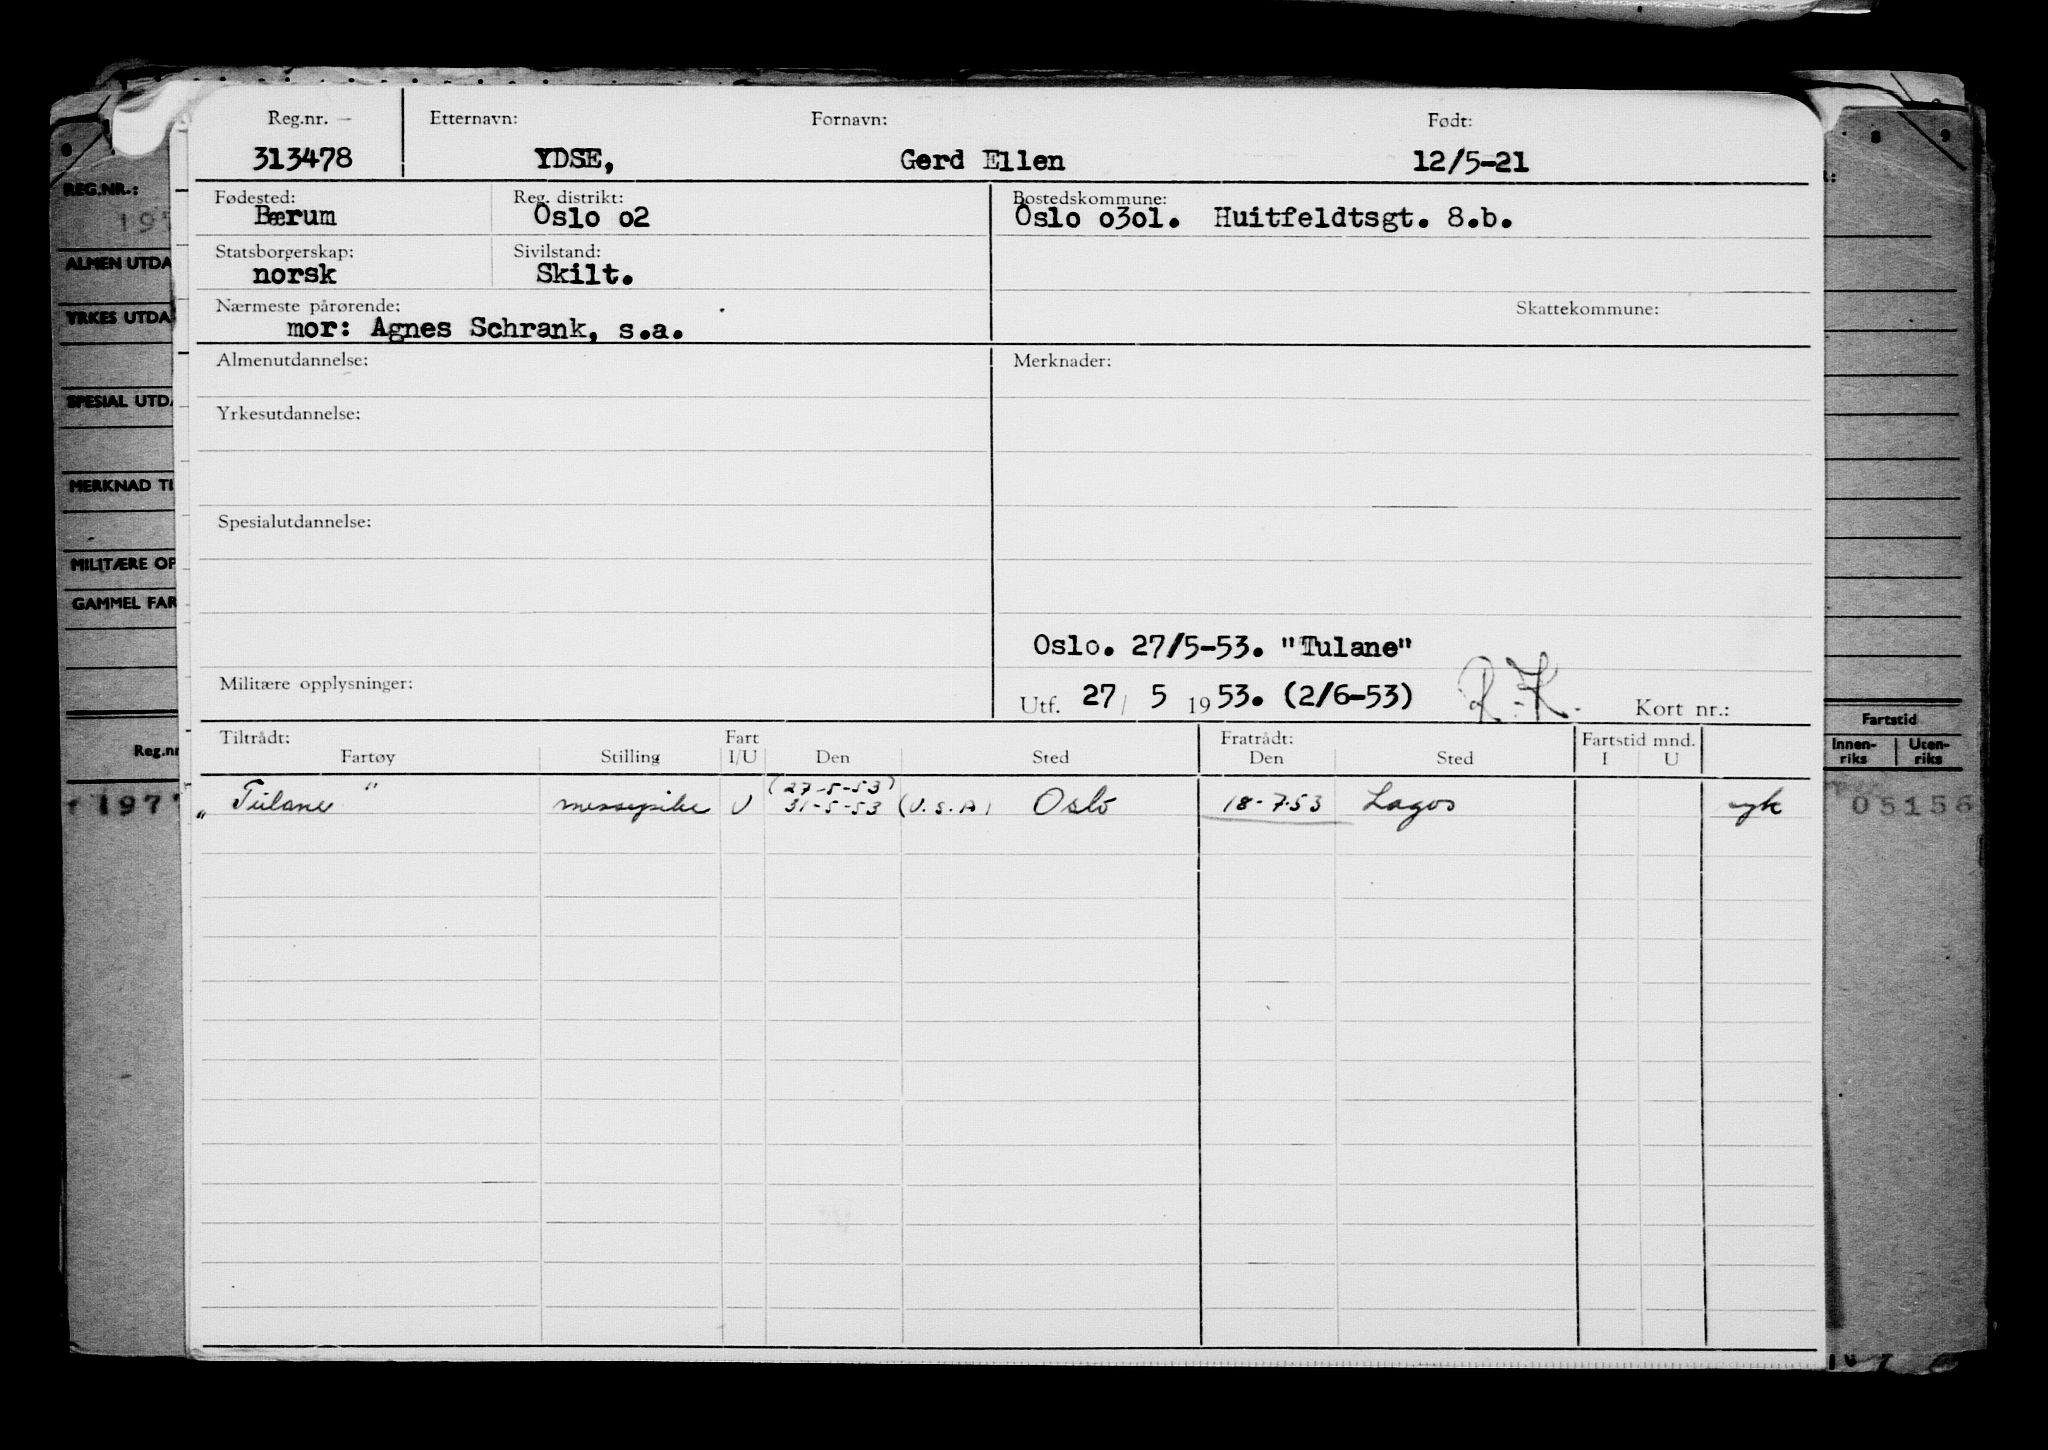 Reg.nr. Etternavn: Fornavn: Født:
313478 YDSE, Gerd Ellen 12/5-21
Fødested: Reg. distrikt: Bostedskommune:
Bærum Oslo o2 Oslo o3o1. Huitfeldtsgt. 8.b.
Statsborgerskap: Sivilstand:
norsk Skilt.
Nærmeste pårørende: Skattekommune:
mor: Agnes Schrank, s.a.
Almenutdannelse: Merknader:
Yrkesutdannelse:
Spesialutdannelse:
Oslo. 27/5-53. "Tulane"
Militære opplysninger:
Utf. 27/ 5 1953. (2/6-53) R.K. Kort nr.:
Tiltrådt: Fart Fratrådt: Fartstid mnd.
Fartøy Stilling I/U Den Sted Den Sted I U
(27-5-53)
„Tulane" messepike U 31-5-53 (U.S.A) Oslo 18-7-53 Lagos syk
REG.NR.:
ALMEN UTDA
YRKES UTDA
SPESIAL UTDA
MERKNAD TI
MILITÆRE OP
GAMMEL FAR
Reg.nr
197
Fartstid
Innen-riks Uten-riks
05156